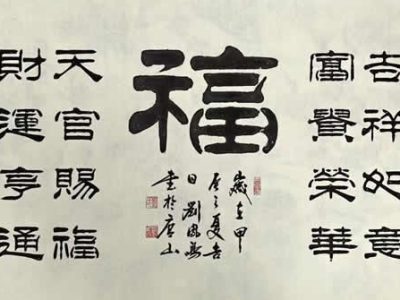 吉祥如意
富貴榮華
福
歲在甲
夏吉
日劉
書於唐山
天官賜福
財運亨通